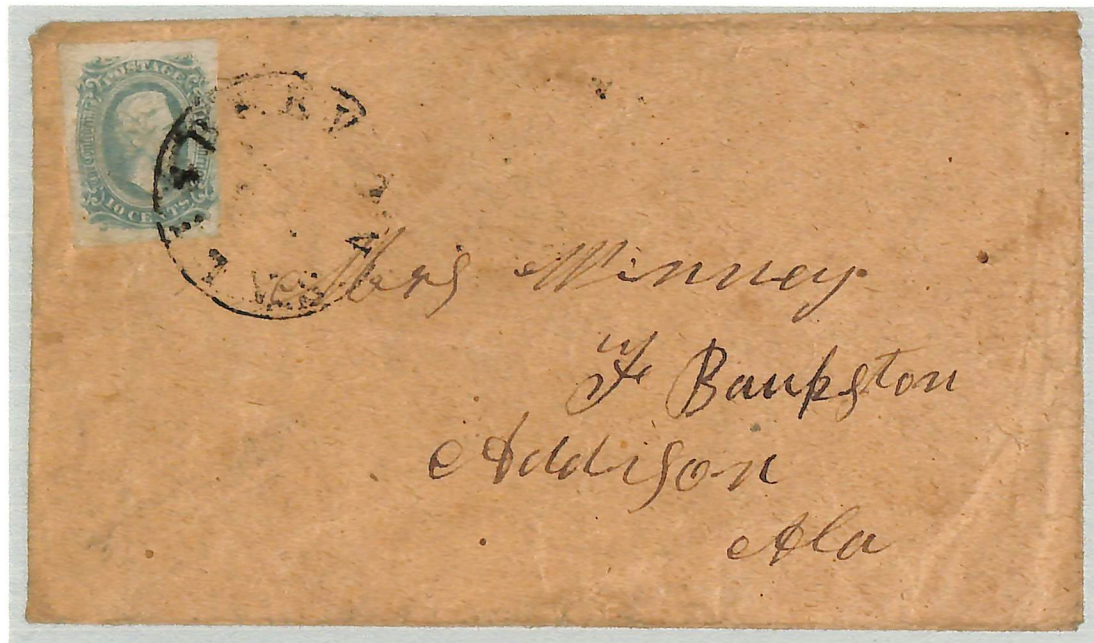 POSTAGE
10 CENTS
Mrs Minney
F Bankston
Addison
Ala